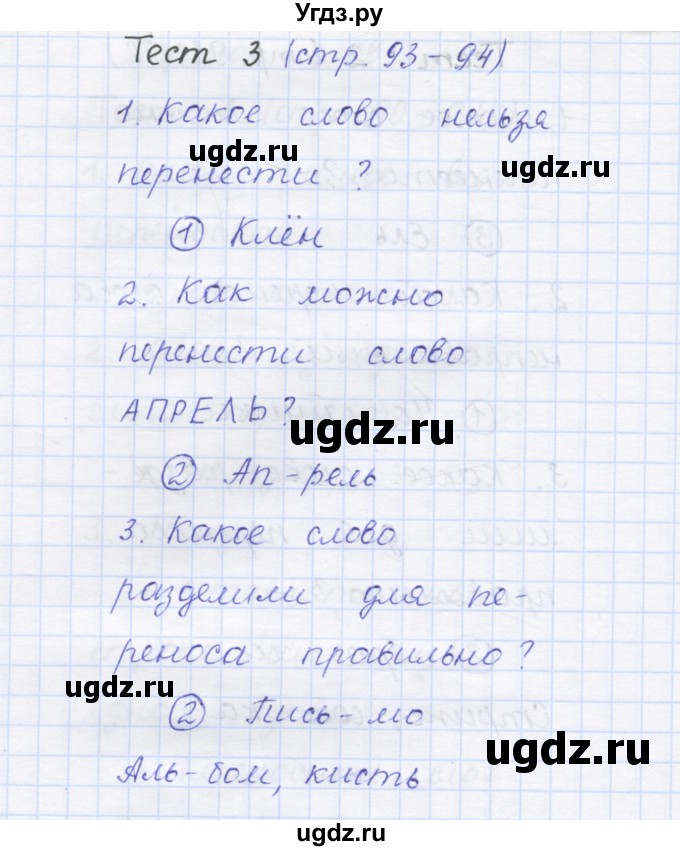 Угдз.ру
Тест 3 (стр. 93-94)
1. Какое слово нельзя
ugdz.ru ugdz.ru
перенести ?
① Клён
2. Как можно
перенести слово
АПРЕЛЬ?
ugdz.ru
② Ап-рель
3. Какое слово
разделили для пе-
реноса правильно?
ugdz.ru
② Пись-мо
ugdz.ru
Аль-бом, кисть
ugdz.ru